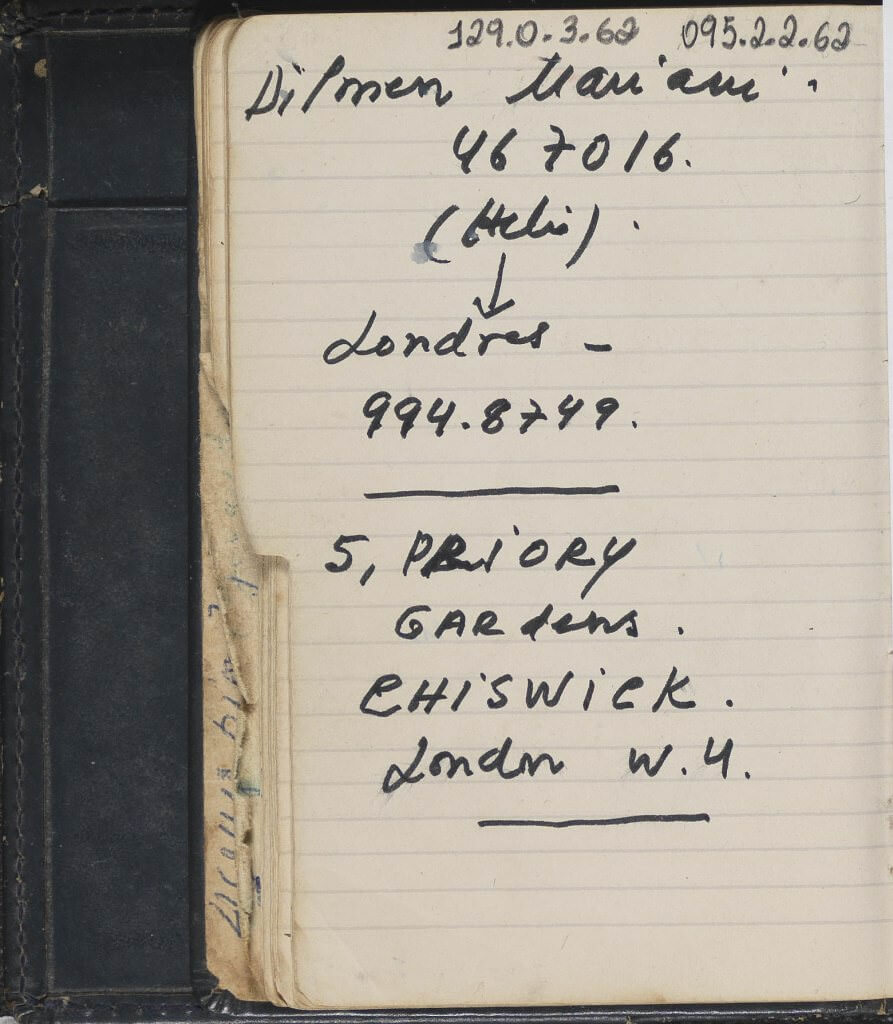 129.0.3.62 095.2.2.62
Dilmen Mariani.
467016.
(Helio).
Londres –
994.8749.
5, PRiORY
GARdens.
CHiSWiCK.
London W.4.